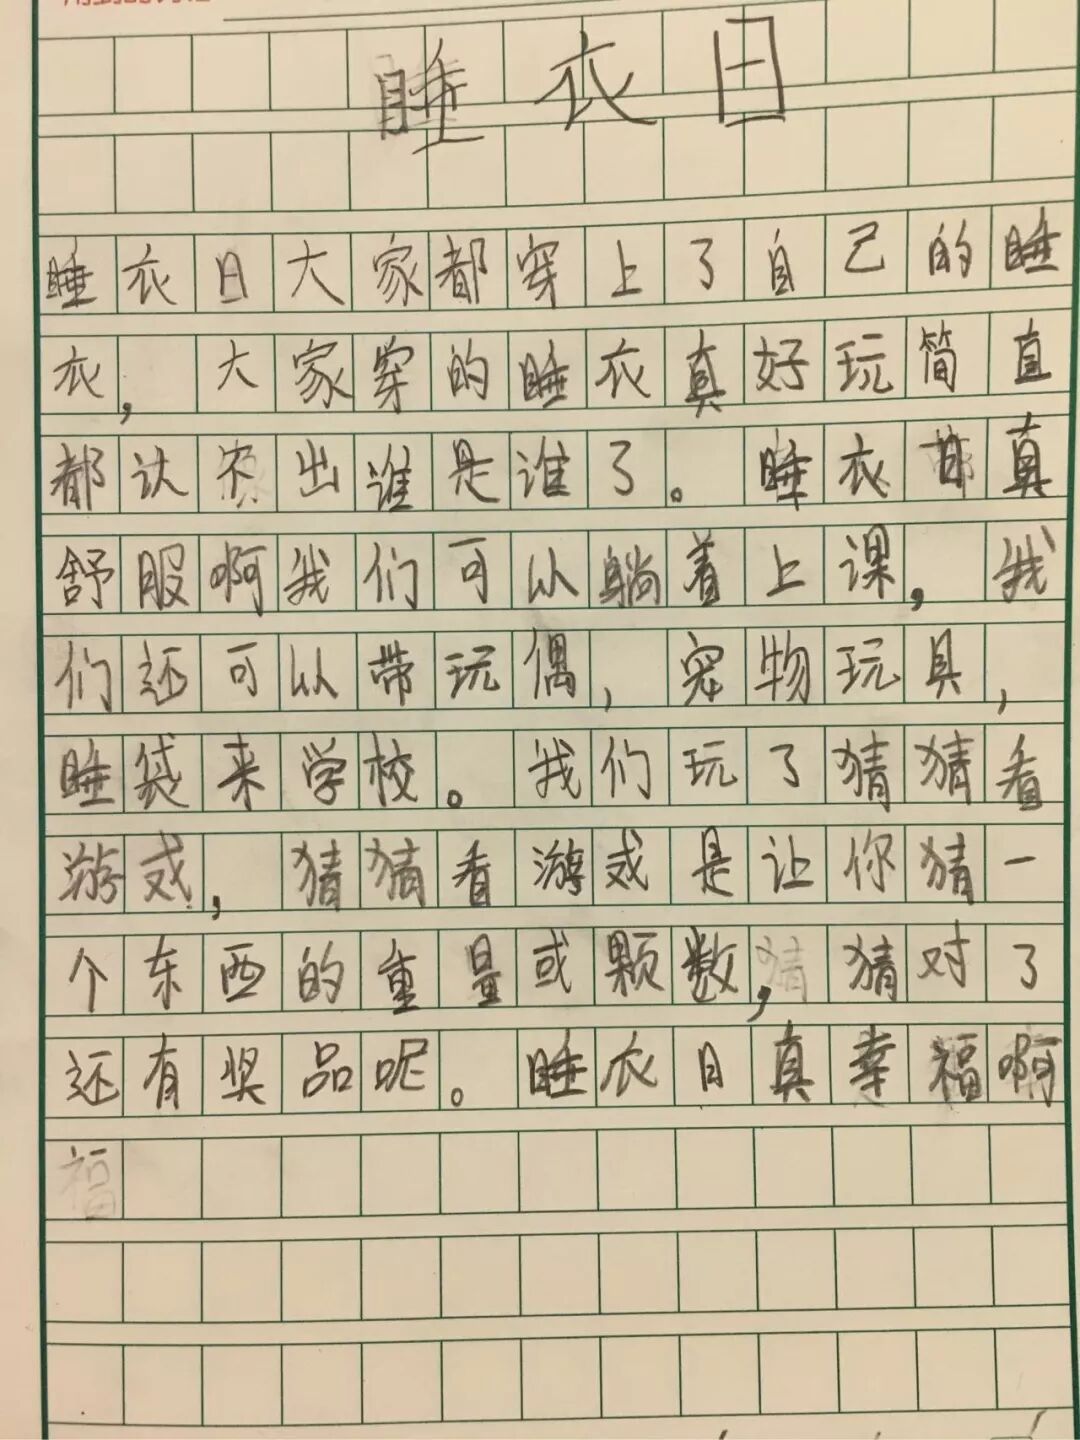 睡衣日
睡衣日大家都穿上了自己的睡
衣，大家穿的睡衣真好玩简直
都认不出谁是谁了。睡衣日真
舒服啊我们可以躺着上课，我
们还可以带玩偶，宠物玩具，
睡袋来学校。我们玩了猜猜看
游戏，猜猜看游戏是让你猜一
个东西的重量或颗数，猜对了
还有奖品呢。睡衣日真幸福啊